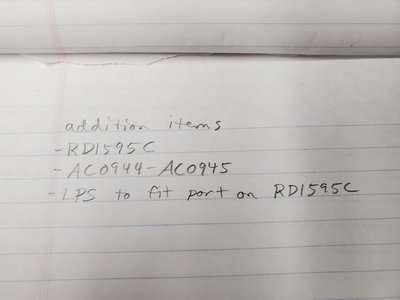 addition items
- RD1595C
- AC0944-AC0945
- LPS to fit port on RD1595C